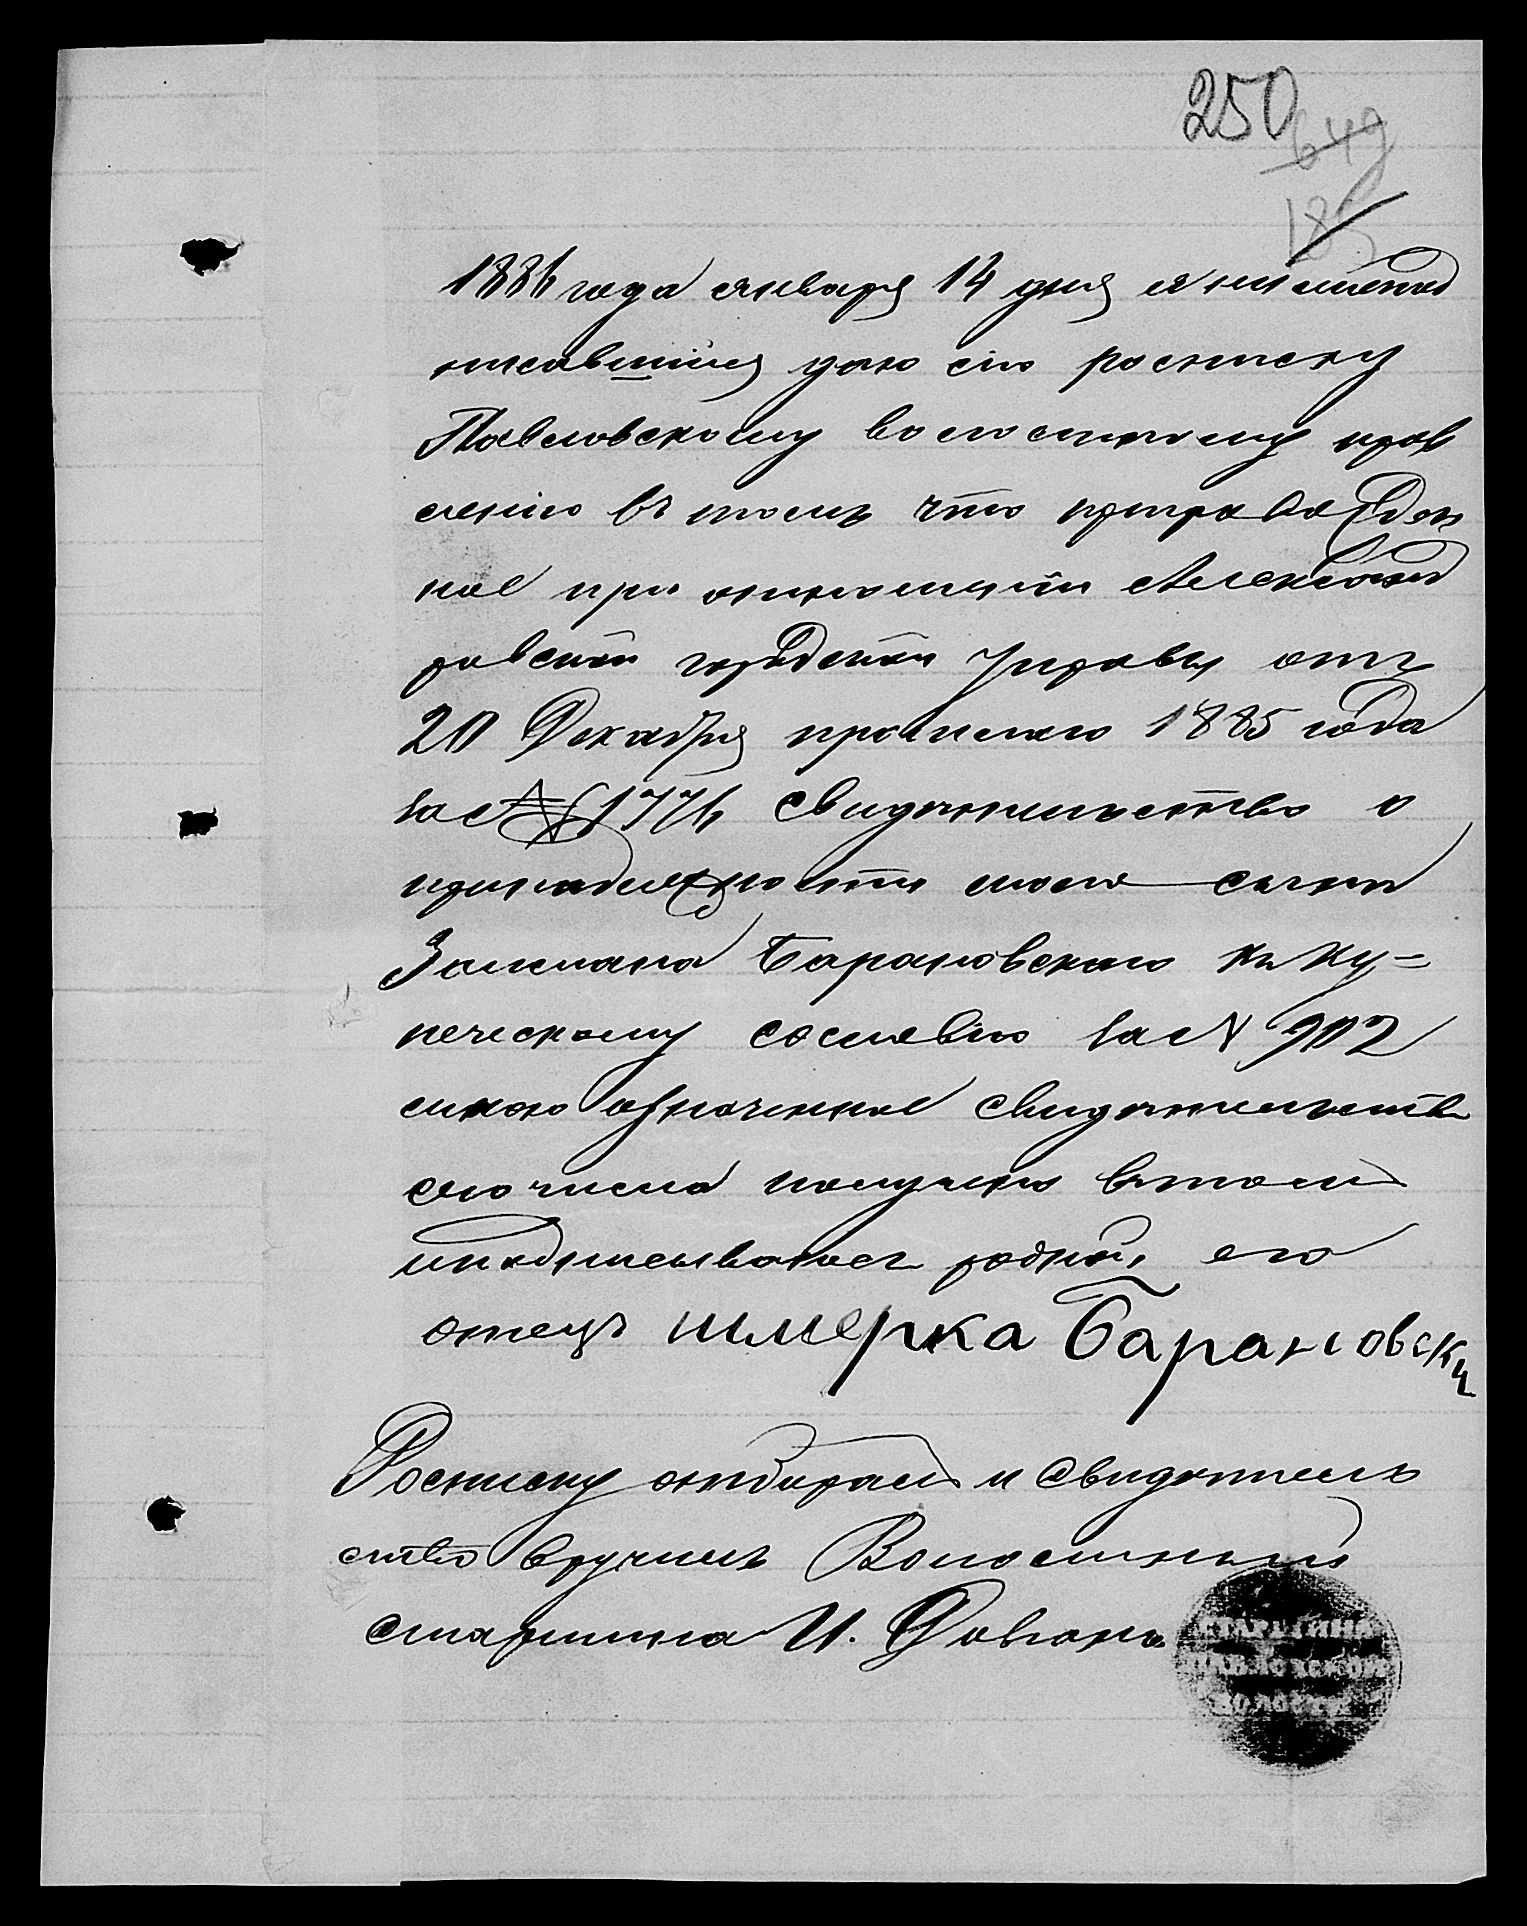 250
649
185
1886 года января 14 дня я нижепод
писавшійся даю сію росписку
Павловскому волостному прав
ленію въ томъ что препровожден
ное при отношеніи Александ
ровской городской Управы отъ
20 Декабря прошлаго 1885 года
за № 1776 свидетельство о
принадлежности моего сына
Залмана Барановскаго къ ку-
печескому сословію за № 902
мною означенное свидетельство
сего числа получено въ томъ
и подписываюсь родной его
отецъ шмерка Барановски
Росписку отбиралъ и свидетель
ство вручилъ Волостный
старшина И.
СТАРШИНА
ПАВЛОВСКОЙ
ВОЛОСТИ